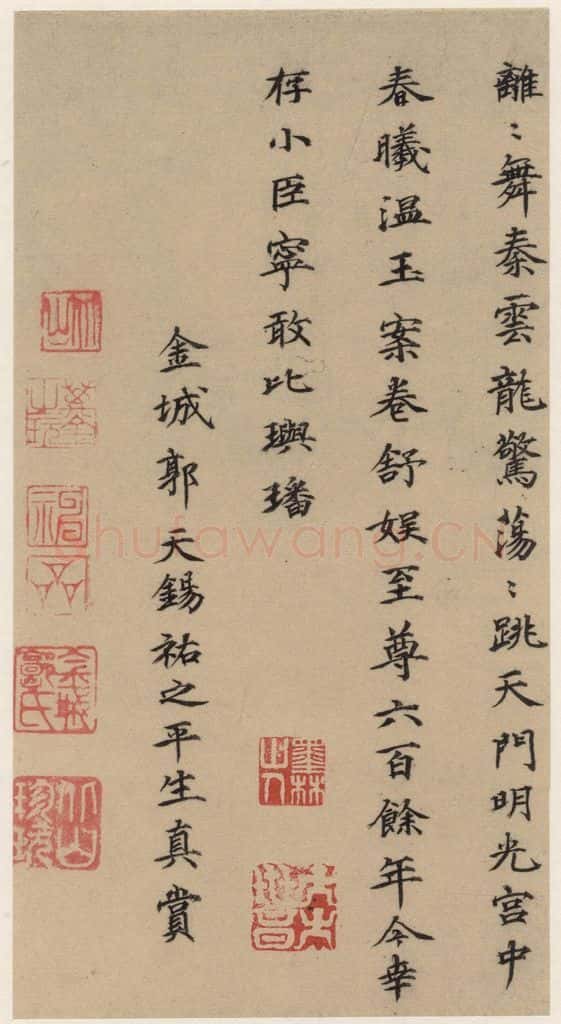 離〻舞秦雲龍驚蕩〻跳天門明光宮中
春曦温玉案卷舒娱至尊六百餘年今幸
存小臣寧敢比璵璠
金城郭天錫祐之平生真賞
shufawang.CN
金城郭氏